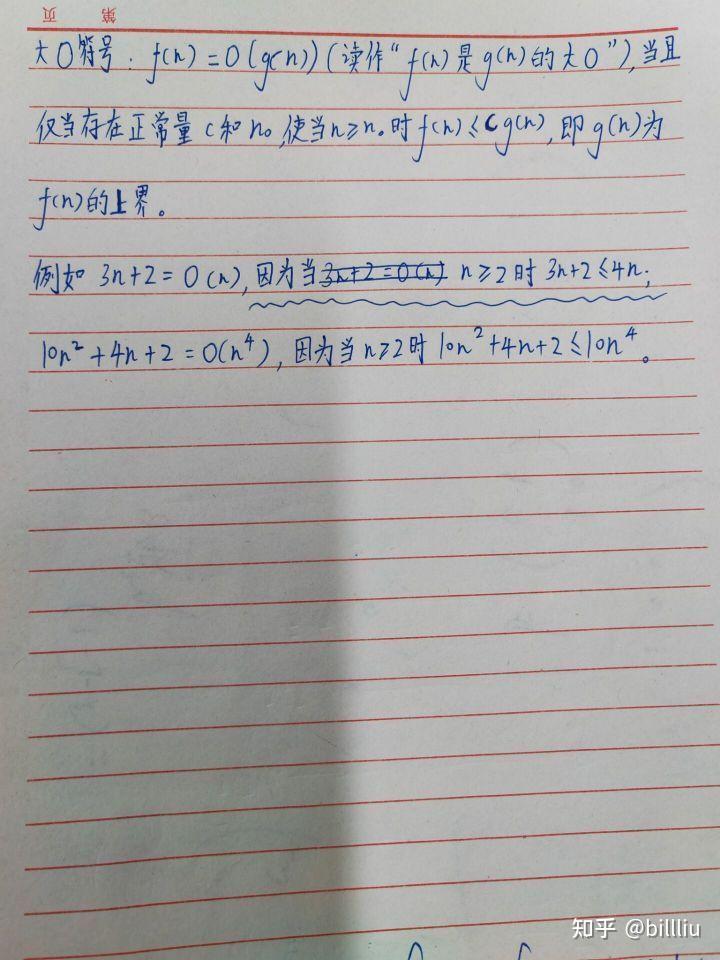 第 页
大O符号：f(n)=O(g(n))(读作“f(n)是g(n)的大O”),当且
仅当存在正常量c和n₀,使当n≥n₀时f(n)≤cg(n),即g(n)为
f(n)的上界。
例如 3n+2=O(n),因为当3n+2=O(n) n≥2时 3n+2≤4n;
10n²+4n+2=O(n⁴),因为当n≥2时 10n²+4n+2≤10n⁴。
知乎 @billliu